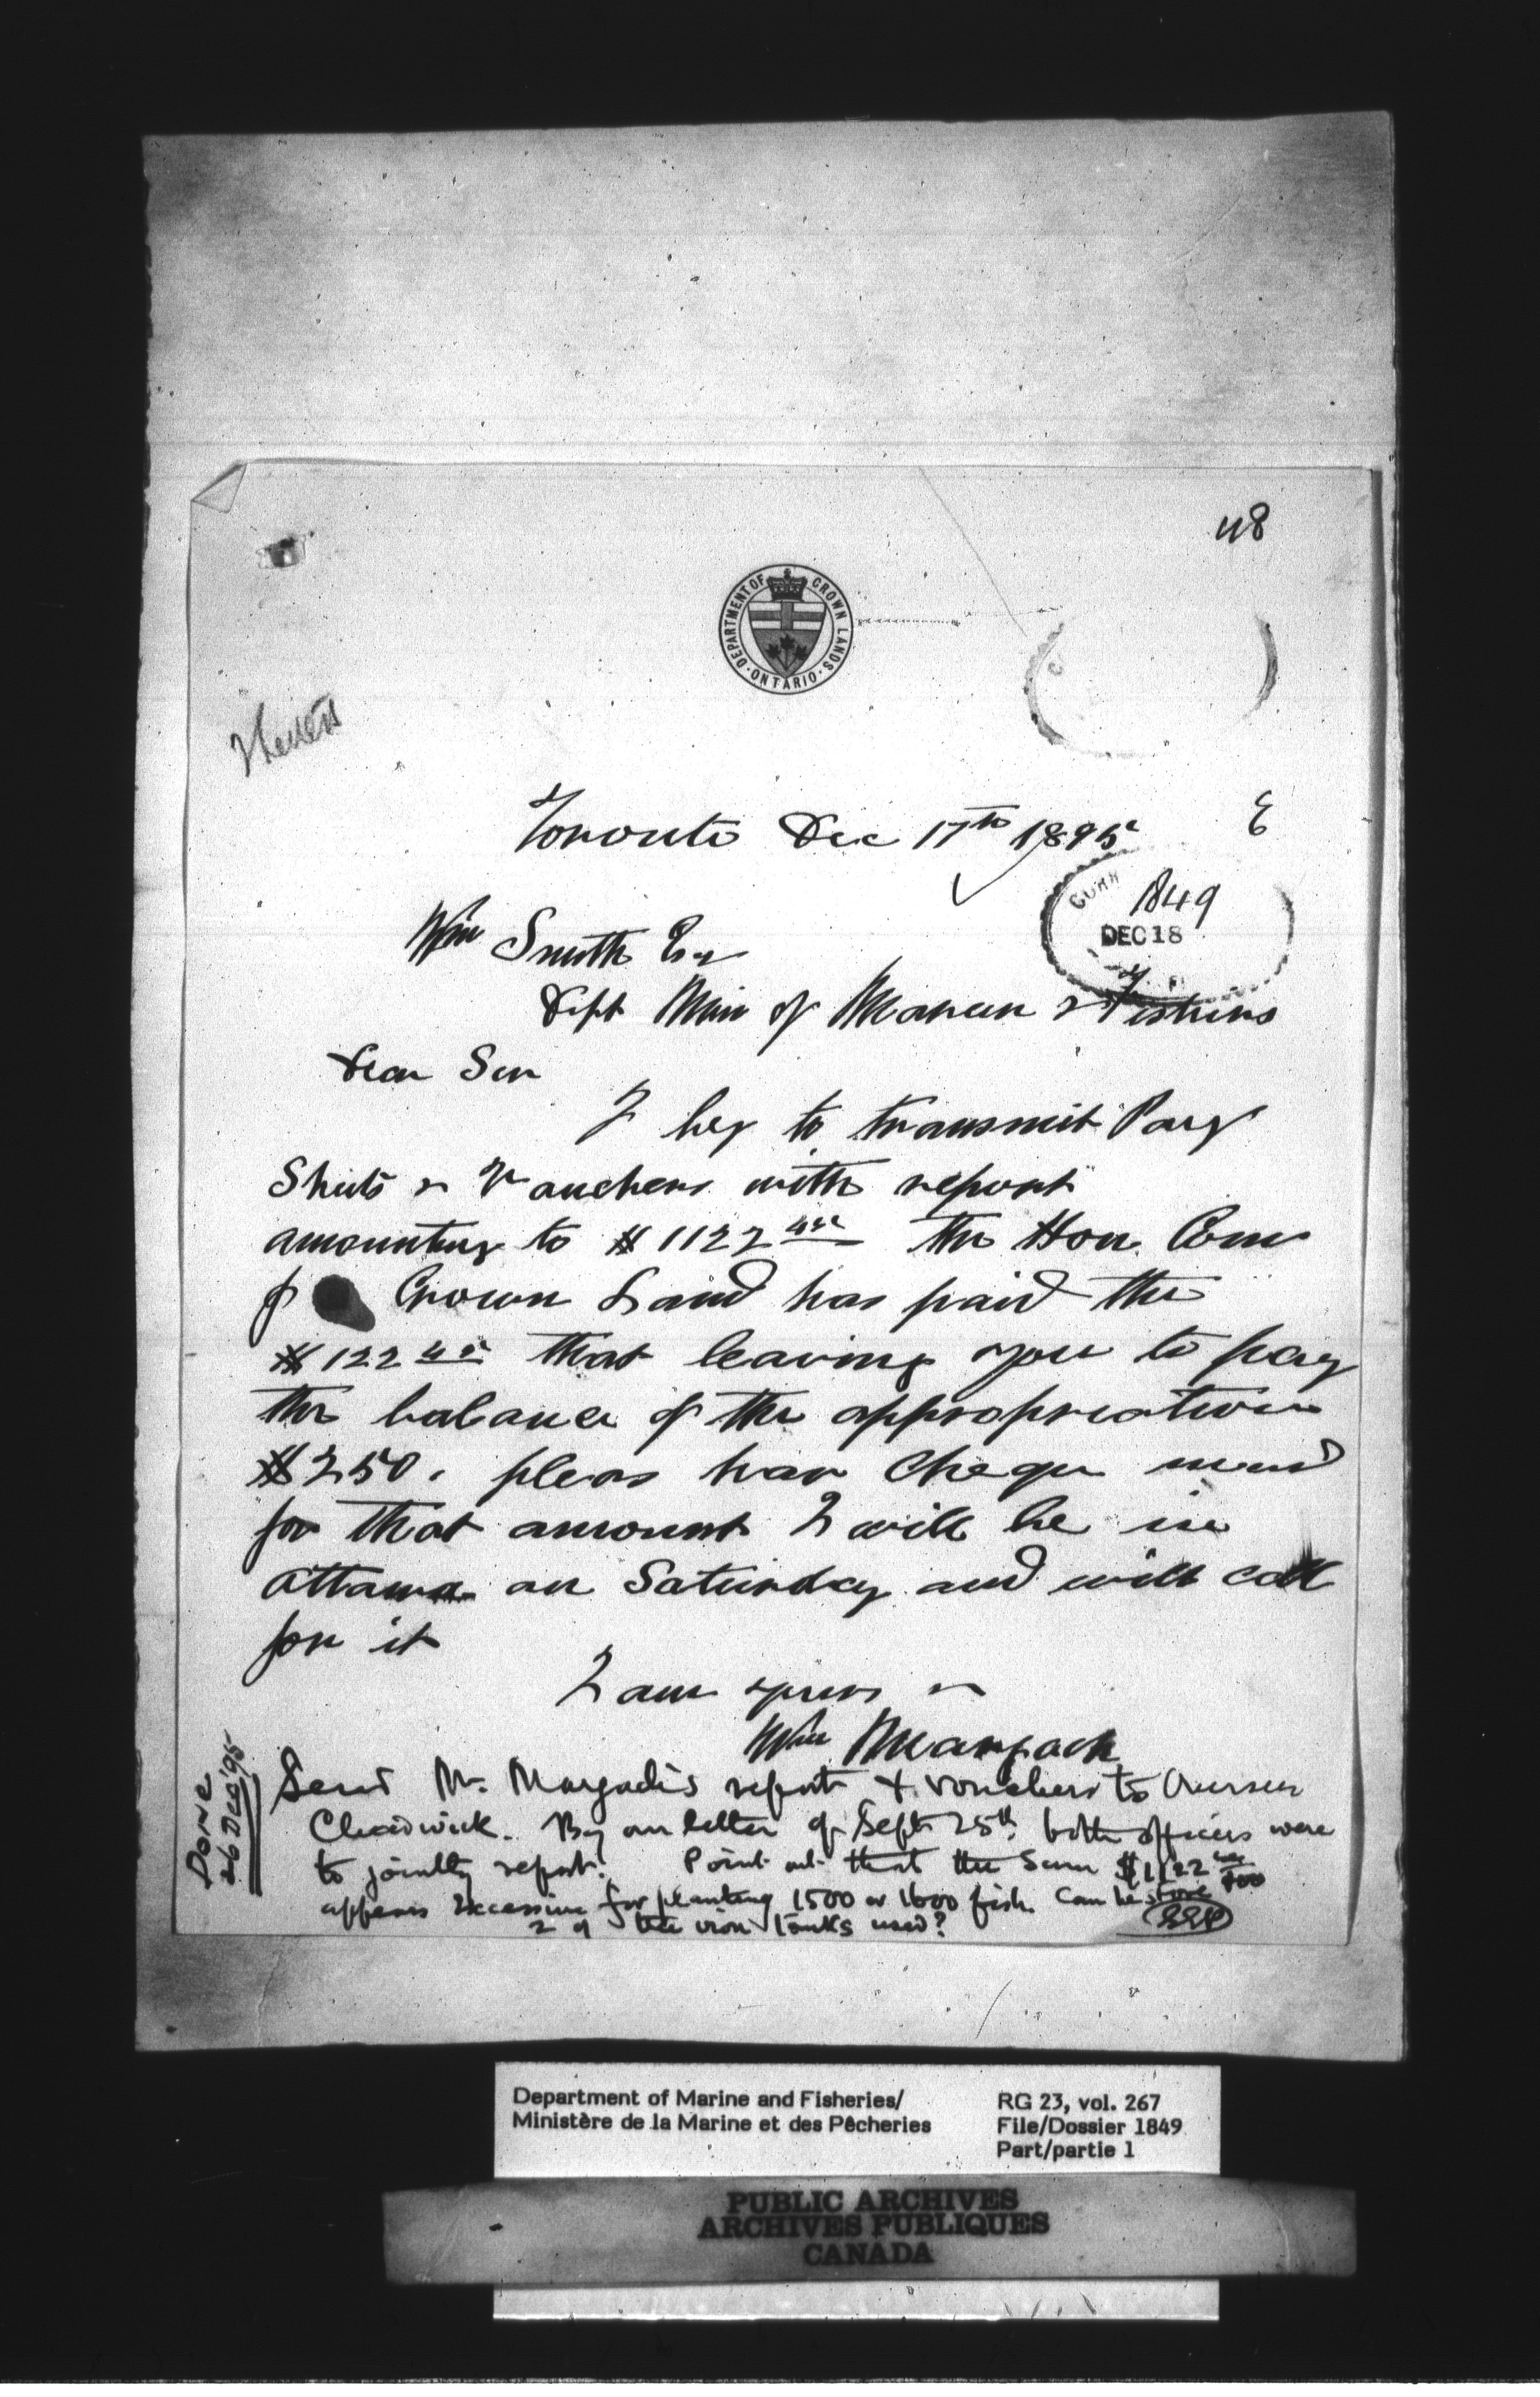 48
DEPARTMENT OF CROWN LANDS
ONTARIO
Toronto Dec 17th 1895
E
1849
DEC 18
Wm Smith Esq
Dept Min of Marine & Fisheries
Dear Sir
I beg to transmit Pay
Sheets & Vouchers with report
amounting to $1122 45 The Hon. Com
of Crown Land has paid the
$122 45 that leaving you to pay
the balance of the appropriation
$250. pleas hav Cheque mad
for that amount I will be in
Ottawa on Saturday and will call
for it
I am yours &
Wm Margach
Send Mr. Margach's report & vouchers to Overseer
Chadwick. By our letter of Sept 25th. both officers were
to jointly report. Point out that the sum $1122
appears excessive for planting 1500 or 1600 fish. Can he
2 of the iron tanks used?
DONE
26 Dec '95
Department of Marine and Fisheries/
Ministère de la Marine et des Pêcheries
RG 23, vol. 267
File/Dossier 1849
Part/partie 1
PUBLIC ARCHIVES
ARCHIVES PUBLIQUES
CANADA